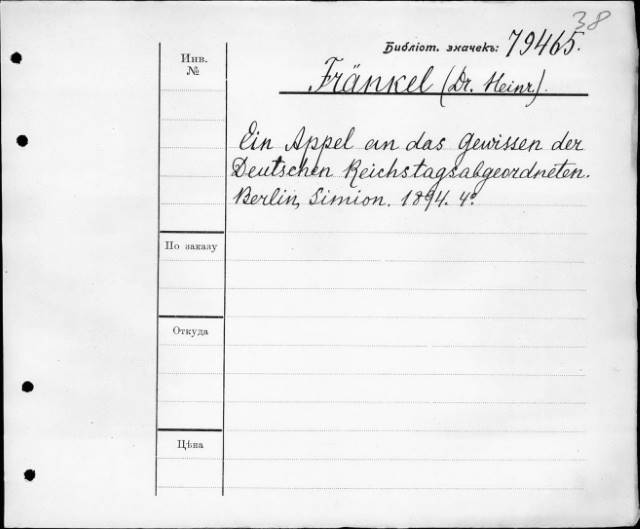 38
Библіот. значекъ: 79465.
Инв.
№
Fränkel (Dr. Heinr.).
Ein Appel an das Gewissen der
Deutschen Reichstagsabgeordneten.
Berlin, Simion. 1894. 4°.
По заказу
Откуда
Цѣна